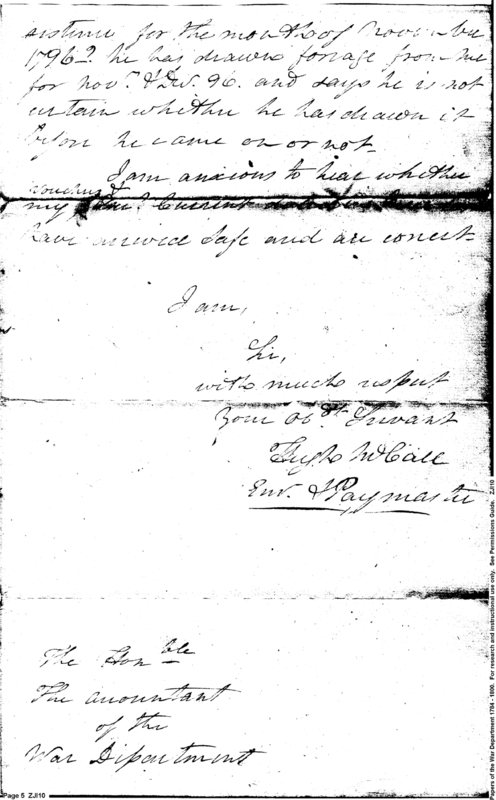 sistence for the month of November
1796? he has drawn forage from me
for Novr. & Dec. 96. and says he is not
certain whether he has drawn it
before he came on or not.
I am anxious to hear whether
vouchers &
my Current
have arrived safe and are correct.
I am,
Sir,
with much respect
Your Obdt. Servant
Hugh McCall
Ens. & Paymaster
The Honble
The Accountant
of the
War Department
Page 5 ZJI10
Papers of the War Department 1784 - 1800. For research and instructional use only. See Permissions Guide. ZJI10